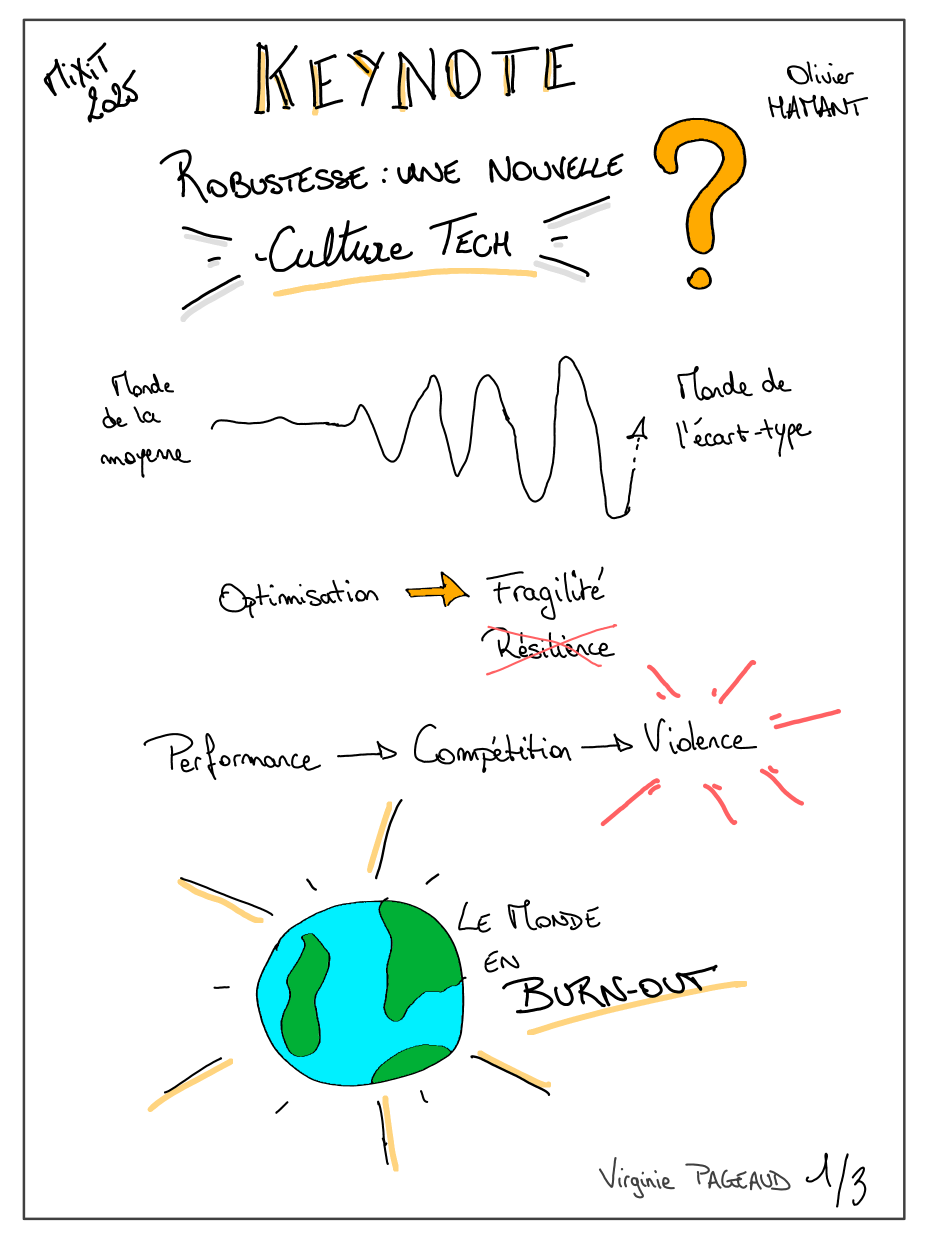 MiXiT
2025
KEYNOTE
Olivier
HAMANT
ROBUSTESSE : UNE NOUVELLE
Culture TECH
?
Monde
de la
moyenne
Monde de
l'écart-type
Optimisation → Fragilité
Résilience
Performance → Compétition → Violence
LE MONDE
EN
BURN-OUT
Virginie PAGEAUD 1/3